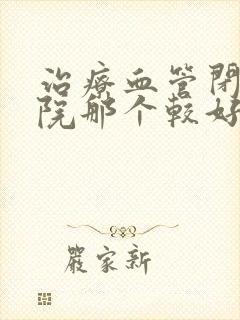 治療血管閉
院那个較好
嚴家新